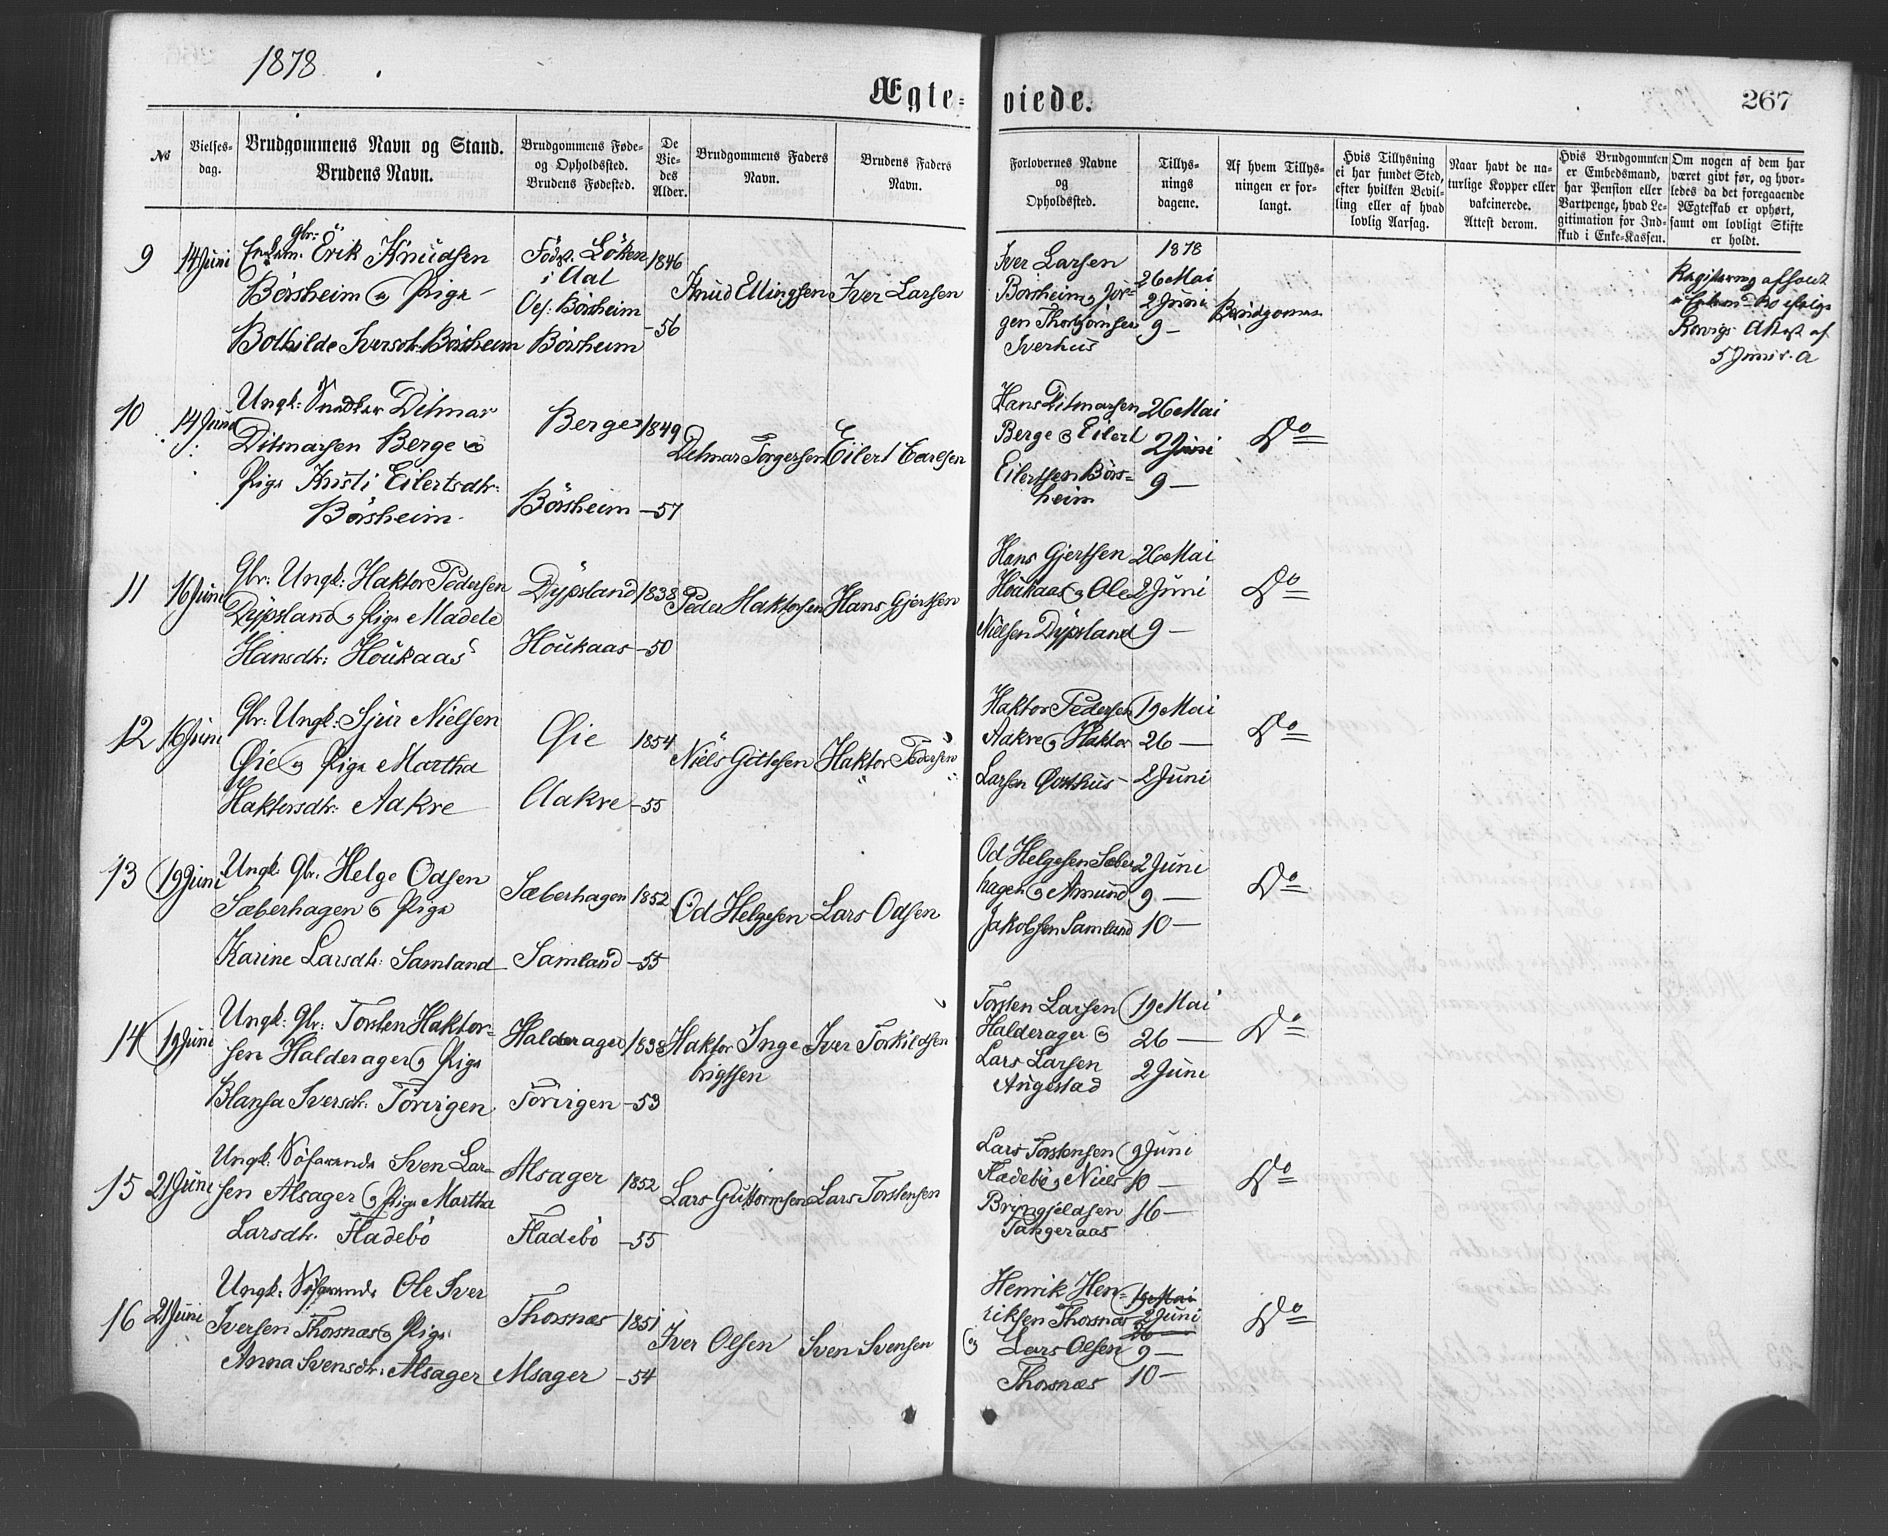 1878
Ægte-
viede.
267
No
Vielses-
dag.
Brudgommens Navn og Stand.
Brudens Navn.
Brudgommens Føde-
og Opholdssted.
Brudens Fødested.
De
Vie-
des
Alder.
Brudgommens Faders
Navn.
Brudens Faders
Navn.
Forlovernes Navne
og
Opholdssted.
Tillys-
nings
dagene.
Af hvem Tillys-
ningen er for-
langt.
Hvis Tillysning
ei har fundet Sted,
efter hvilken Bevil-
ling eller af hvad
lovlig Aarsag.
Naar havt de na-
turlige Kopper eller
vakcinerede.
Attest derom.
Hvis Brudgommen
er Embedsmand,
har Pension eller
Vartpenge, hvad Le-
gitimation for Ind-
skud i Enke-Kassen.
Om nogen af dem har
været givt før, og hvor-
ledes da det foregaaende
Ægteskab er ophørt,
samt om lovligt Skifte
er holdt.
9 14 Juni
Gbr:
Enkem. Erik Knudsen
Børsheim og Pige
Bothilde Iversdtr: Børsheim
Føds. Löken
i Aal
Op: Börsheim
Børsheim
1846
-56
Knud Ellingsen
Iver Larsen
Iver Larsen
Børsheim og Jør-
gen Thorbjørnsen
Iverhus
1878
26 Mai
2 Juni
9 —
Brudgommen
Registrering afholdt
5 Juni d. A
10 14 Juni
Ungk: Snedker Ditmar
Ditmarsen Berge og
Pige Kristi Eilertsdtr:
Børsheim
Berge
Børsheim
1849
-57
Ditmar Torgersen
Eilert Carlsen
Hans Ditmarsen
Berge og Eilert
Eilertsen Børs-
heim
26 Mai
2 Juni
9 —
Do
11 16 Juni
Gbr: Ungk: Haktor Pedersen
Dypsland og Pige Madele
Hansdtr: Houkaas
Dypsland
Houkaas
1838
-50
Peder Haktorsen
Hans Gjertsen
Hans Gjertsen
Houkaas og Ole
Nielsen Dypsland
26 Mai
2 Juni
9 —
Do
12 16 Juni
Gbr: Ungk: Sjur Nielsen
Øie og Pige Martha
Haktorsdtr: Aakre
Øie
Aakre
1854
-55
Niels Gitlesen
Haktor Pedersen
Haktor Pedersen
Aakre og Haktor
Larsen
19 Mai
26 —
2 Juni
Do
13 19 Juni
Ungk. Gbr. Helge Odsen
Sæberhagen og Pige
Karine Larsdtr: Samland
Sæberhagen
Samland
1852
-55
Od Helgesen
Lars Odsen
Od Helgesen Sæber-
hagen og Amund
Jakobsen Samland
2 Juni
9 —
10 —
Do
14 19 Juni
Ungk: Gbr: Torsten Haktor-
sen Halderager og Pige
Blansa Iversdtr. Törvigen
Halderager
Törvigen
1838
-53
Haktor Inge-
brigtsen
Iver Torkildsen
Torsten Larsen
Halderager og
Lars Larsen
Augestad
19 Mai
26 —
2 Juni
Do
15 21 Juni
Ungk. Söfarende Sven Lar-
sen Alsager og Pige Martha
Larsdtr. Fladebö
Alsager
Fladebö
1852
-55
Lars Guttormsen
Lars Torstensen
Lars Torstensen
Fladebö og Niels
Bringjeldsen
Tangeraas
9 Juni
10 —
16 —
Do
16 21 Juni
Ungk. Söfarende Ole Iver
Iversen Thorsnæs og Pige
Anna Svensdtr: Alsager
Thorsnæs
Alsager
1851
-54
Iver Olsen
Sven Svensen
Henrik Hen-
riksen Thorsnæs
og Lars Olsen
Thorsnæs
19 Mai
2 Juni
26 —
9 —
10 —
Do